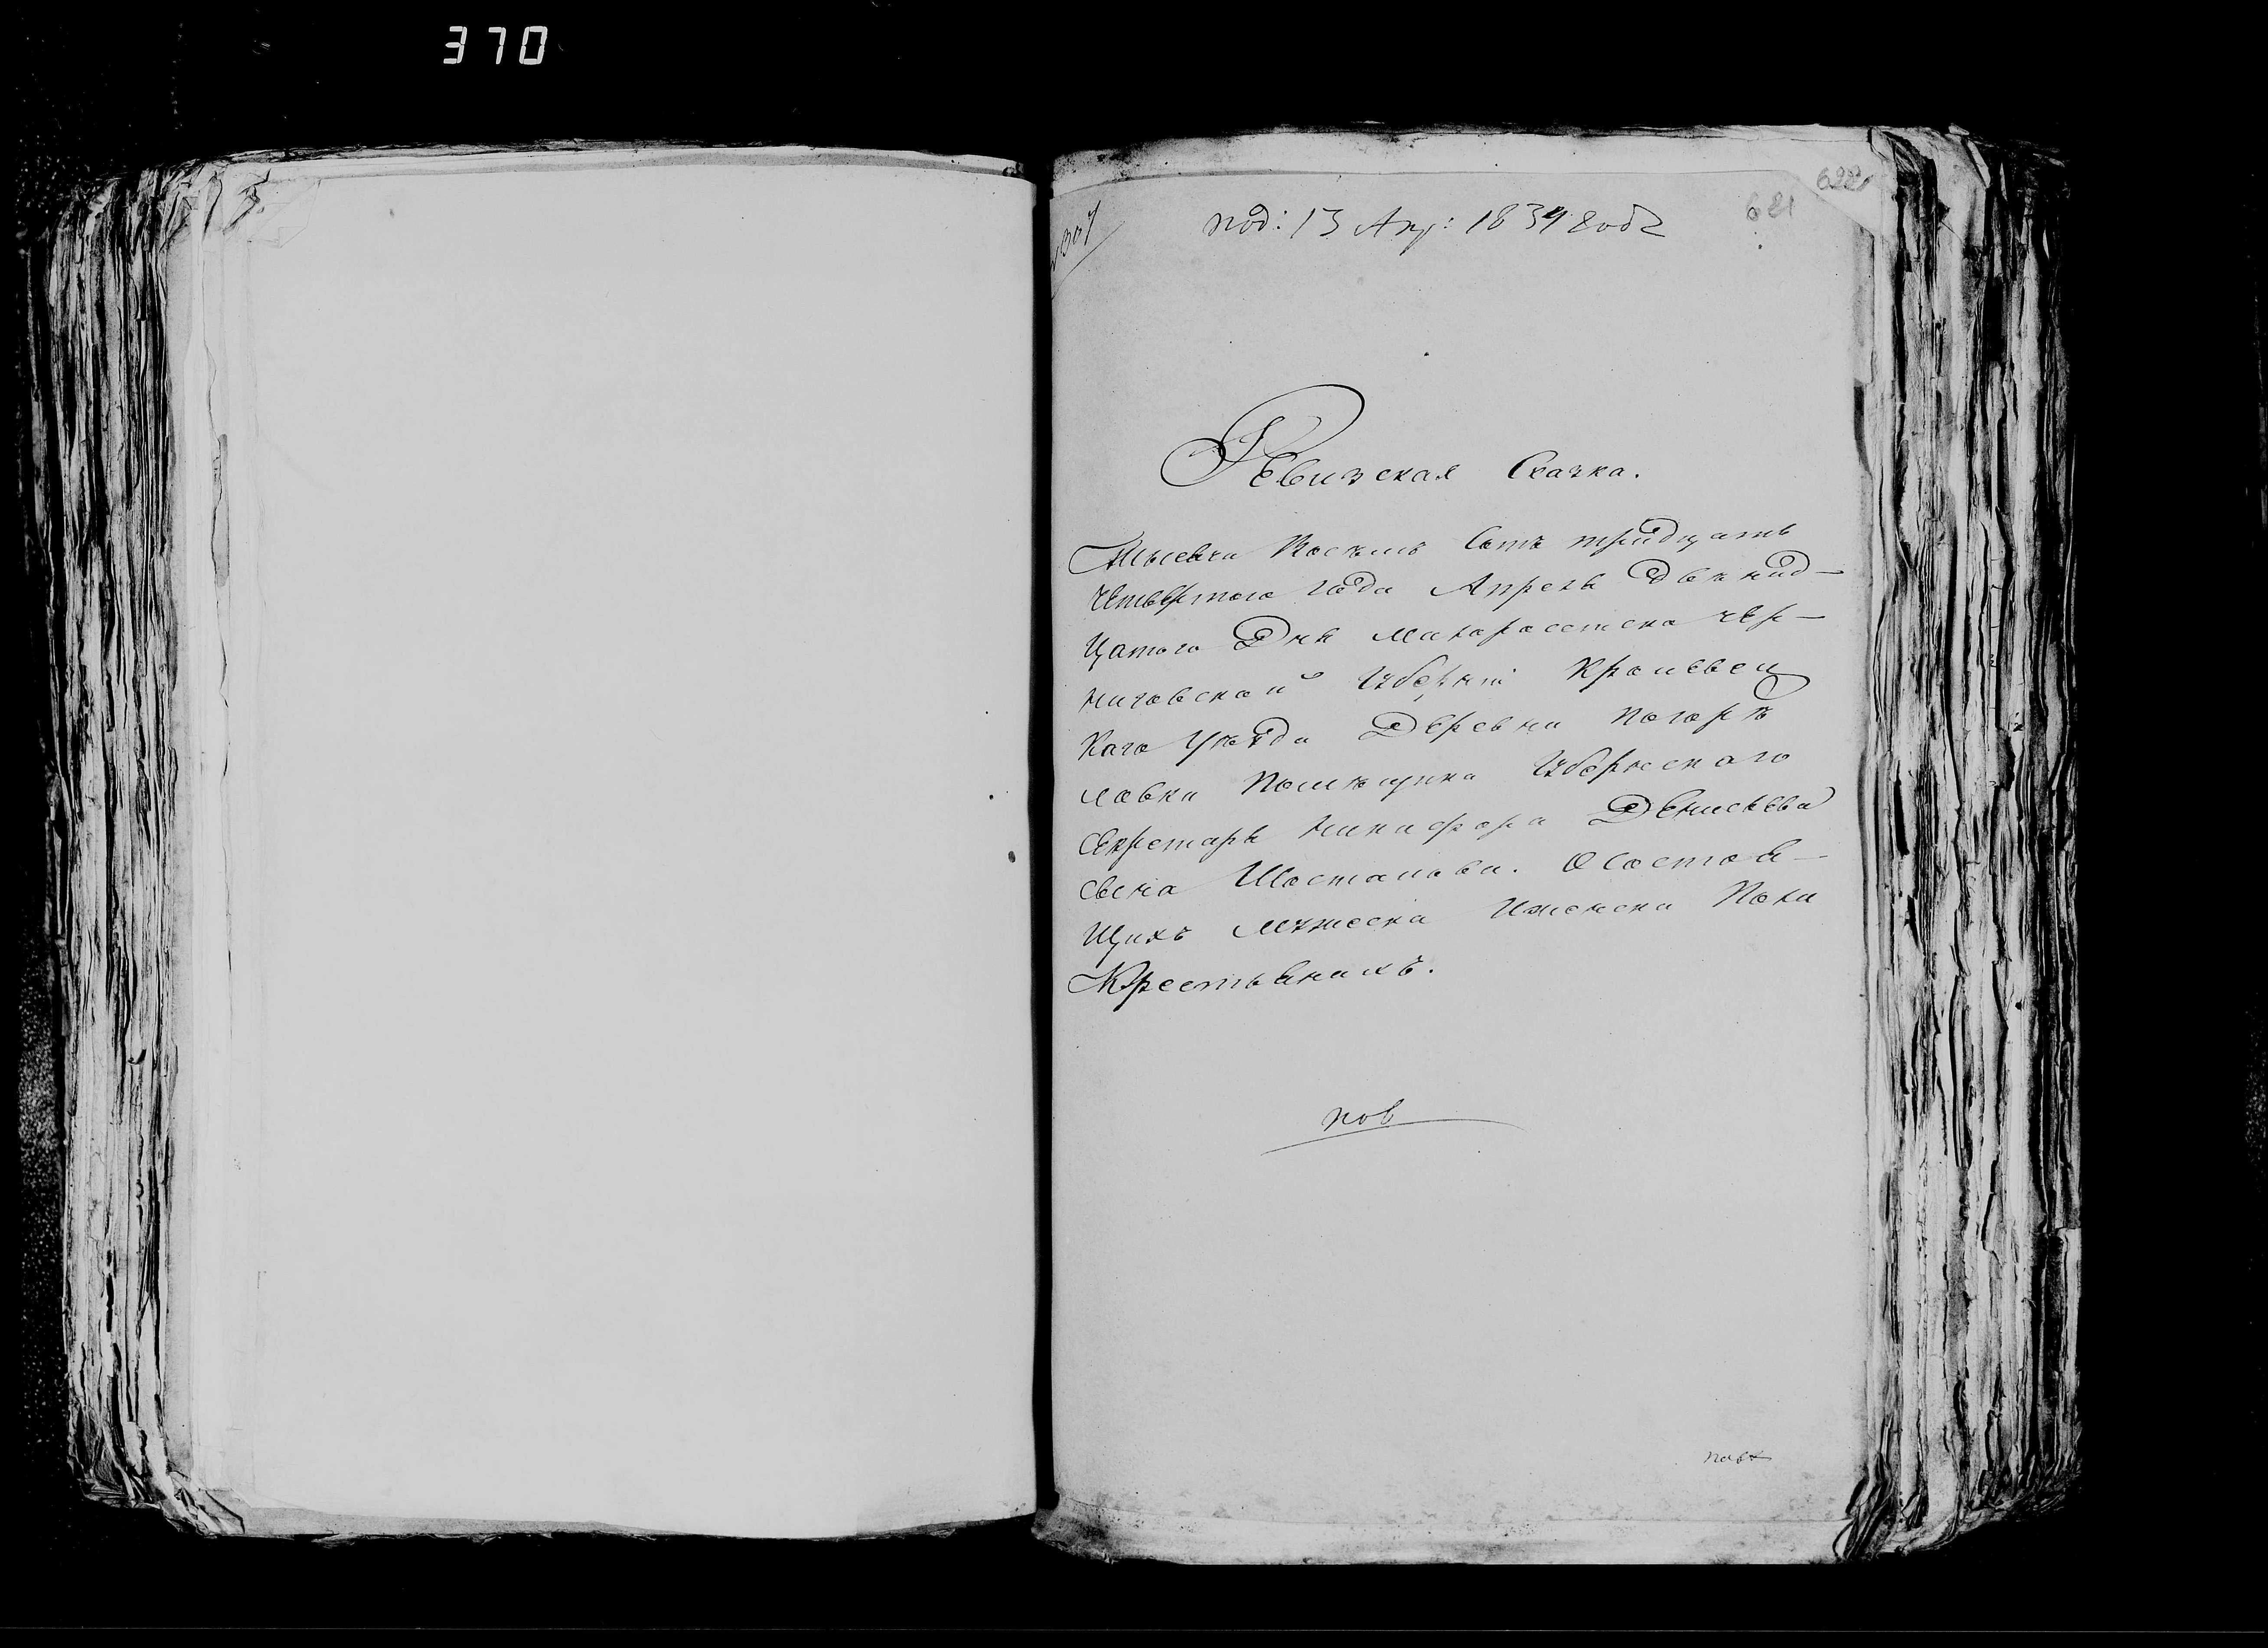 370
622
621
под: 13 Апр: 1834 года
Ревизская Сказка.
Тысеча Восемь Сотъ тридцать
четвертого года Апреля Двенад-
цатого Дня малоросстска чер-
ниговской Губернїи Кролевец
кого уезда Деревни Погорѣ
ловки Помѣщика Губернскаго
Секретаря Никифора Денисьева
сына Шосталова. О Состоя-
щихъ мужеска Иженска Пола
Крестьянахъ.